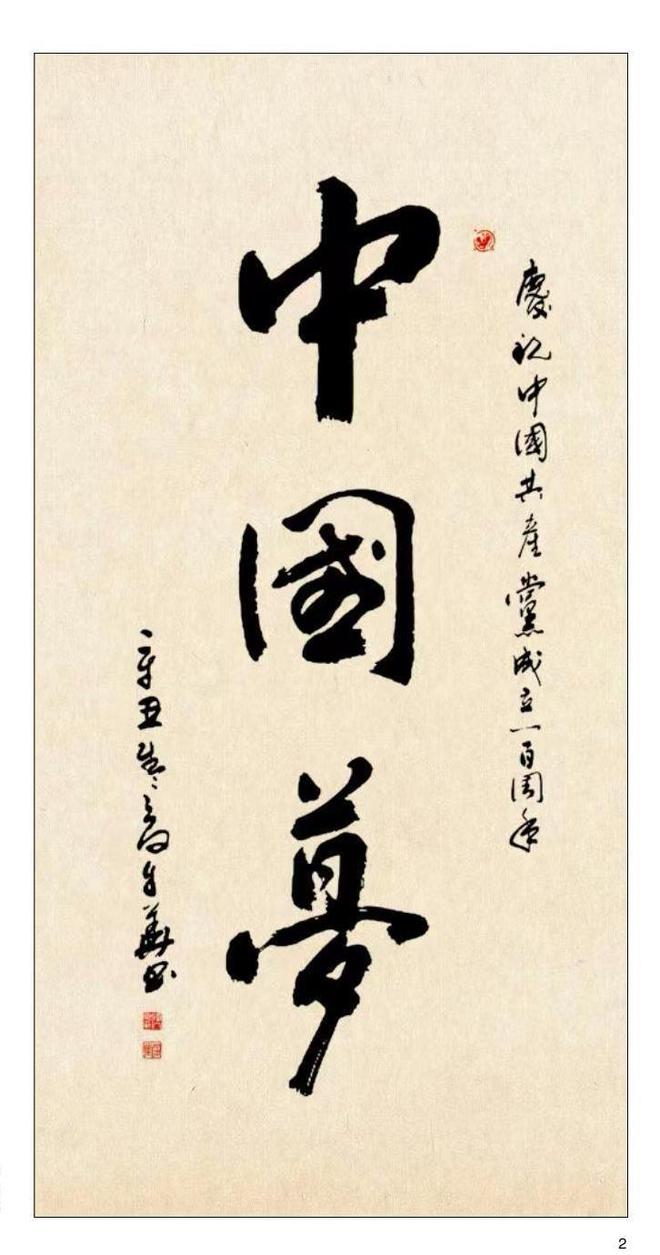 慶祝中國共產黨成立一百周年
中國夢
辛丑
華書
2